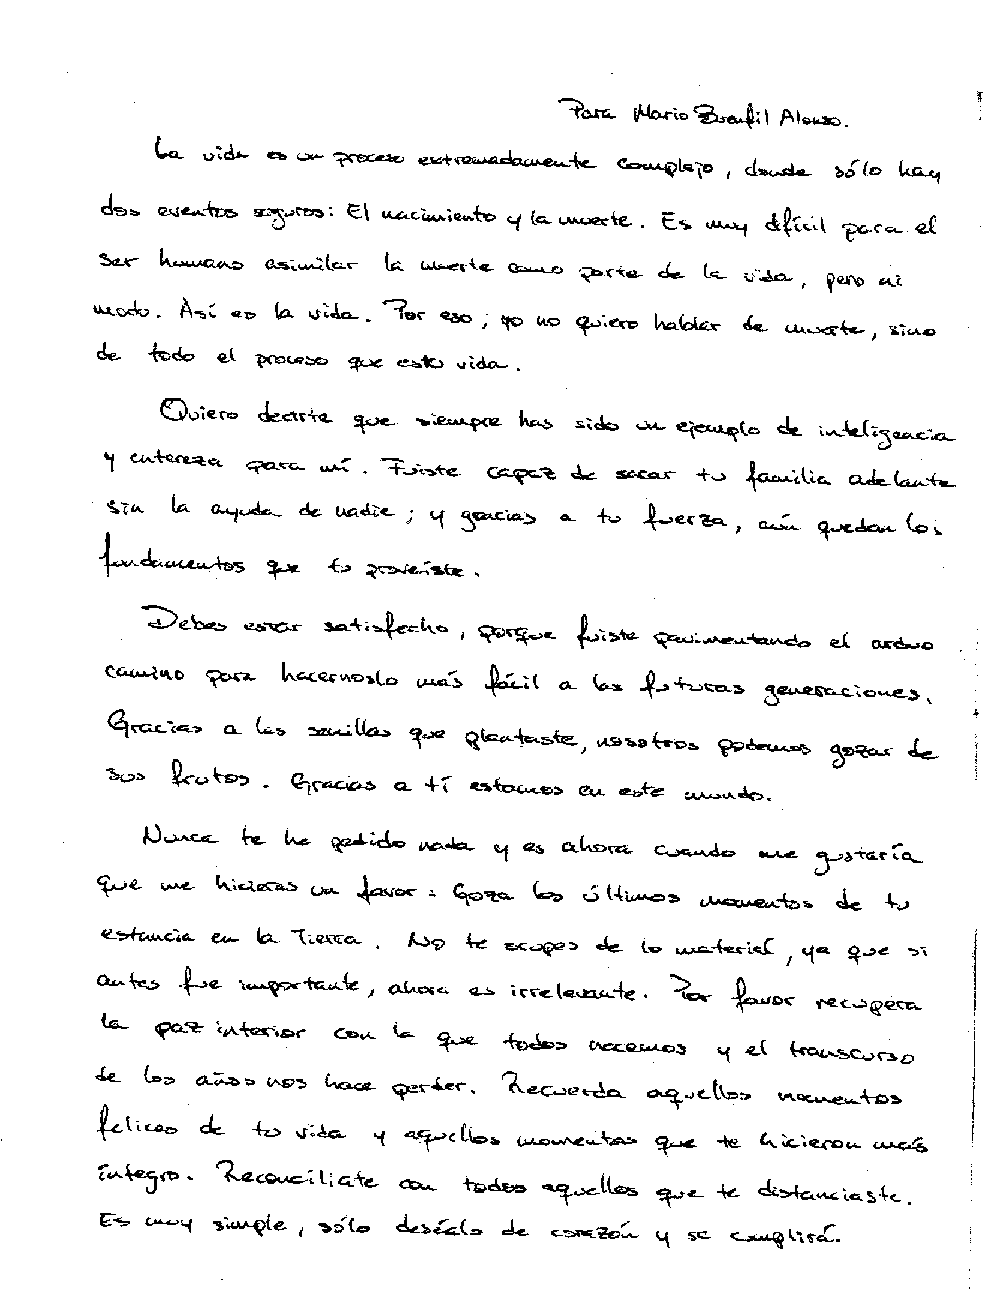 Para Mario Buenfil Alonso.
La vida es un proceso extremadamente complejo, donde sólo hay
dos eventos seguros: El nacimiento y la muerte. Es muy difícil para el
ser humano asimilar la muerte como parte de la vida, pero ni
modo. Así es la vida. Por eso, yo no quiero hablar de muerte, sino
de todo el proceso que es tu vida.
Quiero decirte que siempre has sido un ejemplo de inteligencia
y entereza para mí. Fuiste capaz de sacar tu familia adelante
sin la ayuda de nadie; y gracias a tu fuerza, aún quedan los
fundamentos que tu proveíste.
Debes estar satisfecho, porque fuiste pavimentando el arduo
camino para hacernoslo más fácil a las futuras generaciones.
Gracias a las semillas que plantaste, nosotros podemos gozar de
sus frutos. Gracias a tí estamos en este mundo.
Nunca te he pedido nada y es ahora cuando me gustaría
que me hicieras un favor: Goza los últimos momentos de tu
estancia en la Tierra. No te ocupes de lo material, ya que si
antes fue importante, ahora es irrelevante. Por favor recupera
la paz interior con la que todos nacemos y el transcurso
de los años nos hace perder. Recuerda aquellos momentos
felices de tu vida y aquellos momentos que te hicieron más
íntegro. Reconcíliate con todos aquellos que te distanciaste.
Es muy simple, sólo deséalo de corazón y se cumplirá.